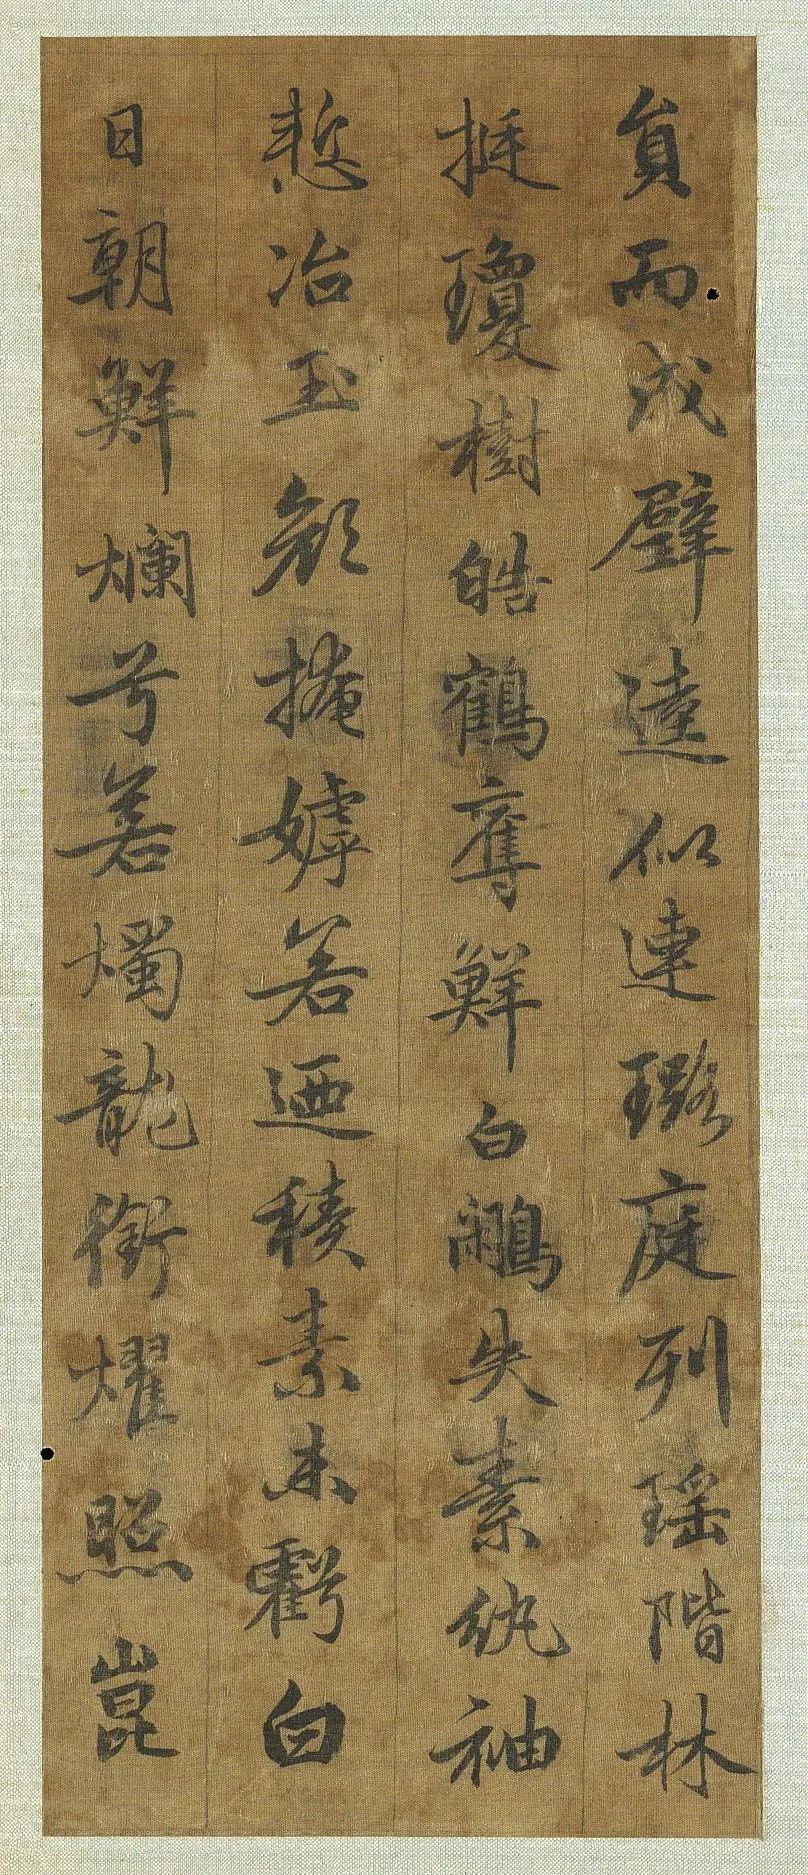 員而成璧逵似連璐庭列瑶階林
挺瓊樹皓鶴奪鮮白鷴失素紈袖
慙冶玉顏掩嫭若迺積素未虧白
日朝鮮爛兮若燭龍銜燿照崑